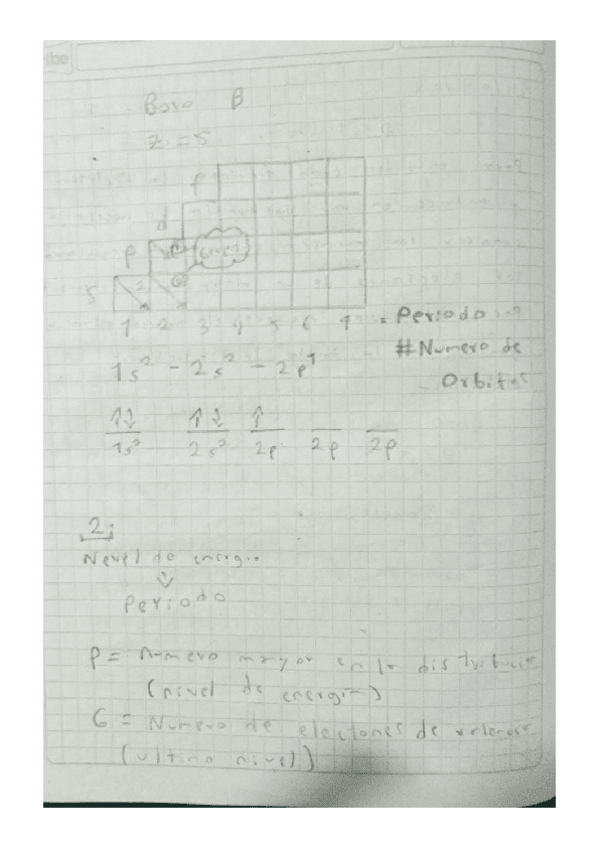 Boro B
Z = 5
f
d
p
s
1 2 3 4 5 6 7 = Periodo
# Numero de
Orbitas
1s² - 2s² - 2p¹
↑↓ ↑↓ ↑
1s² 2s² 2p 2p 2p
2;
Nevel de energia
⇓
Periodo
P = Numero mayor en la distribucion
(nivel de energia)
G = Numero de electones de valencia
(ultimo nivel)